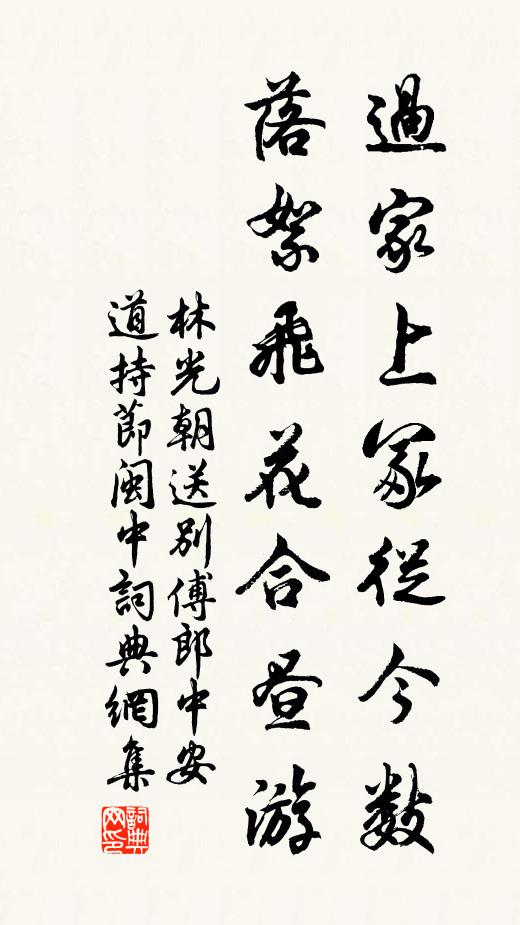 過家上冢從今數
落絮飛花合晝游
林光朝送別傅郎中安
道持節閩中詞典網集
詞典
网印